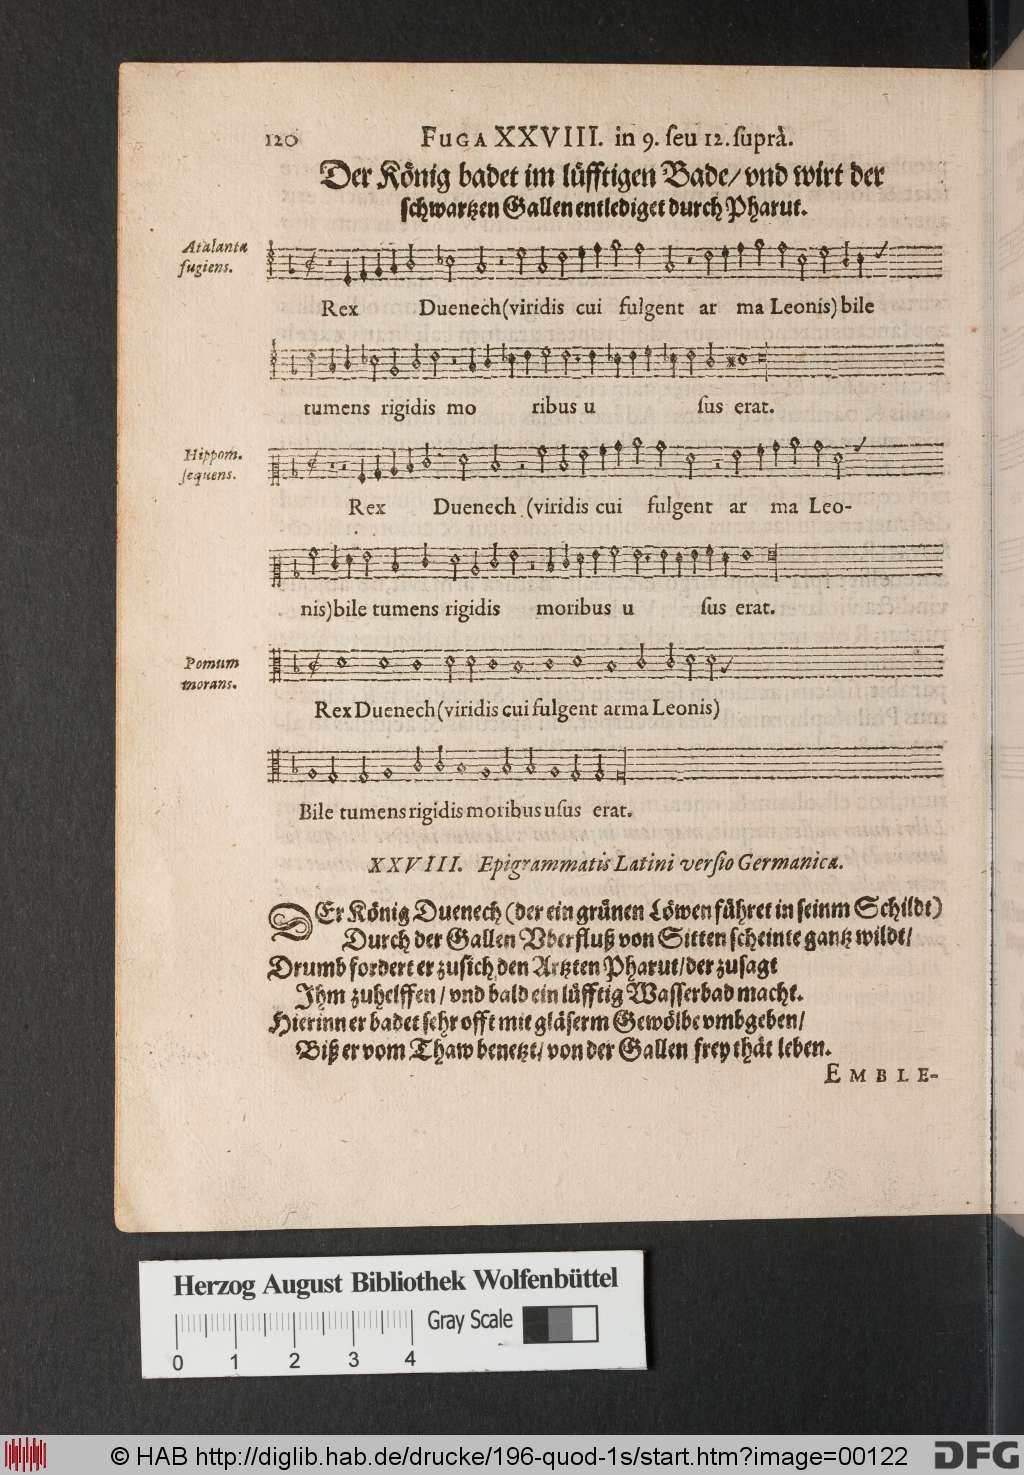 120
FUGA XXVIII. in 9. ſeu 12. ſuprà.
Der König badet im lüfftigen Bade/ vnd wirt der
ſchwartzen Gallen entlediget durch Pharut.
Atalanta
fugiens.
Rex Duenech (viridis cui fulgent ar ma Leonis) bile
tumens rigidis mo ribus u ſus erat.
Hippom.
ſequens.
Rex Duenech (viridis cui fulgent ar ma Leo-
nis) bile tumens rigidis moribus u ſus erat.
Pomum
morans.
Rex Duenech (viridis cui fulgent arma Leonis)
Bile tumens rigidis moribus uſus erat.
XXVIII. Epigrammatis Latini verſio Germanica.
DEr König Duenech (der ein grünen Löwen führet in ſeinm Schildt)
Durch der Gallen Vberfluß von Sitten ſcheinte gantz wildt/
Drumb fordert er zu ſich den Artzten Pharut/ der zuſagt
Ihm zuhelffen/ vnd bald ein lüfftig Waſſerbad macht.
Hierinn er badet ſehr offt mit gläſerm Gewölbe vmbgeben/
Biß er vom Thaw benetzt/ von der Gallen frey thät leben.
EMBLE-
Herzog August Bibliothek Wolfenbüttel
Gray Scale
0 1 2 3 4
© HAB http://diglib.hab.de/drucke/196-quod-1s/start.htm?image=00122
DFG